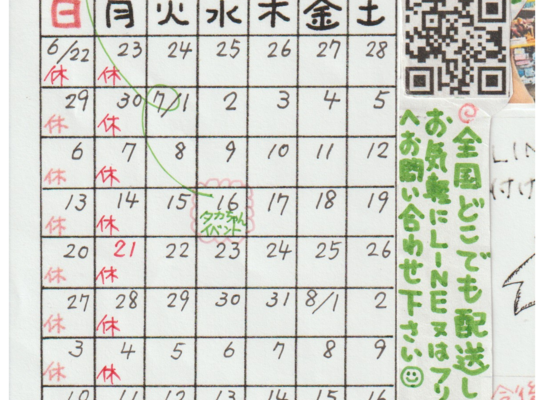 日 月 火 水 木 金 土
6/22 23 24 25 26 27 28
休 休
29 30 7/1 2 3 4 5
休 休
6 7 8 9 10 11 12
休 休
13 14 15 16 17 18 19
休 休 タカちゃん
イベント
20 21 22 23 24 25 26
休 休
27 28 29 30 31 8/1 2
休 休
3 4 5 6 7 8 9
休 休
10 11 12 13 14 15 16
全国どこでも配送し
お気軽にLINE又はフリ
へお問い合わせ下さい
LIN
付け
今後